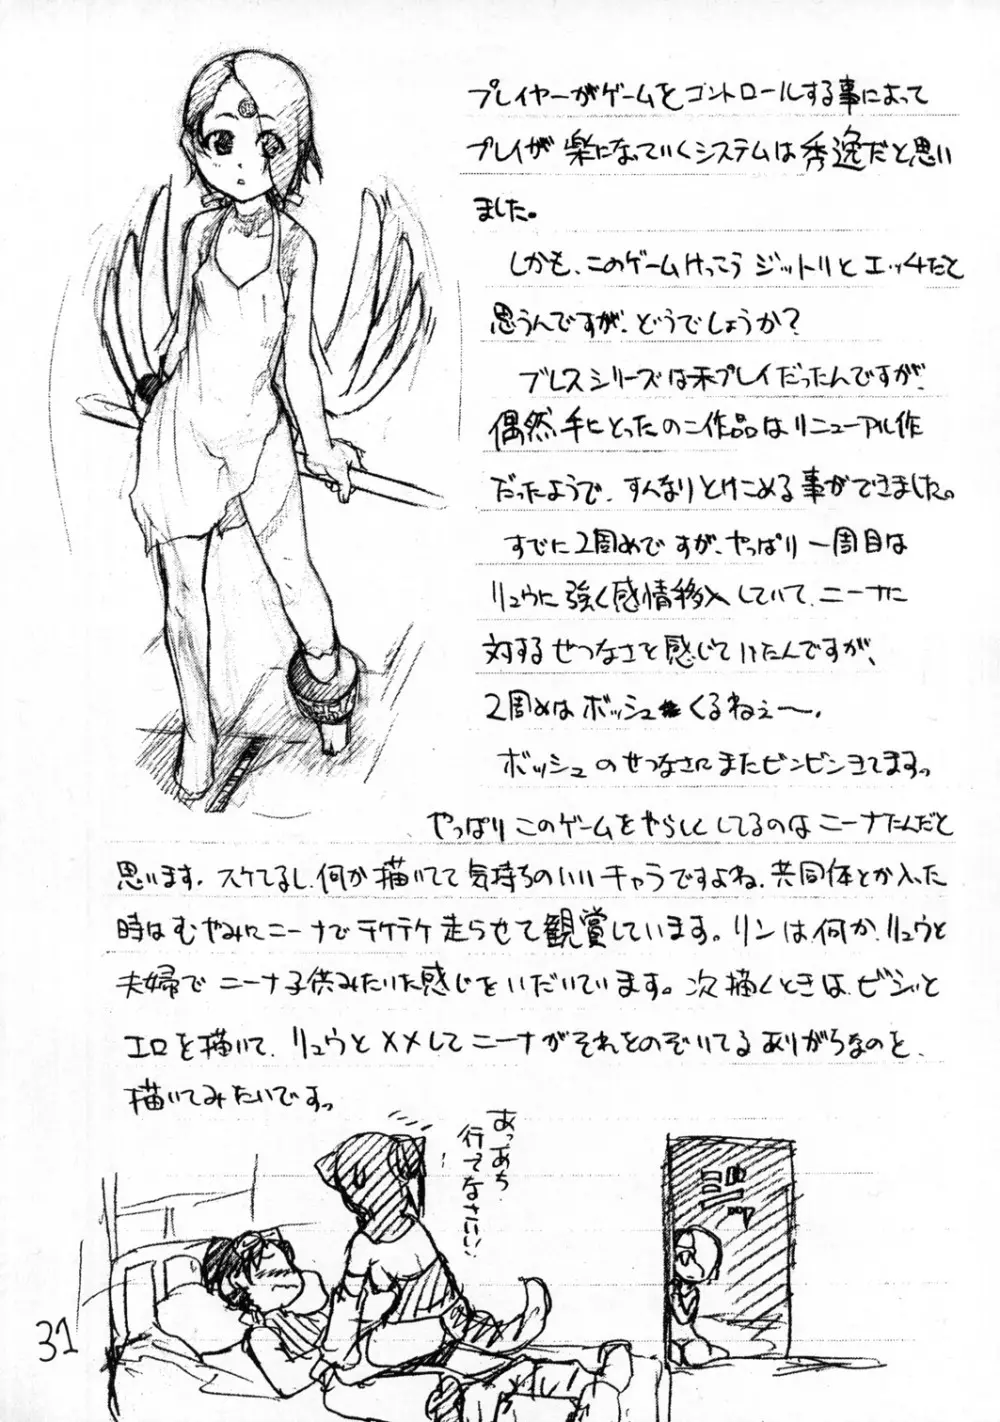 プレイヤーがゲームをコントロールする事によって
プレイが楽になっていくシステムは秀逸だと思い
ました。
しかも、このゲームけっこうジットリとエッチだと
思うんですが、どうでしょうか?
ブレスシリーズは未プレイだったんですが、
偶然手にとったのこ作品はリニューアル作
だったようで、すんなりとけこめる事ができました。
すでに2周めですが、やっぱり一周目は
リュウに強く感情移入していて、ニーナに
対するせつなさを感じていたんですが、
2周めはボッシュくるねぇ〜、
ボッシュのせつなさにまたビンビンきてますっ
やっぱりこのゲームをやらしくしてるのはニーナたんだと
思います。スケてるし、何か描いてて気持ちのいいキャラですよね、共同体とか入った
時はむやみにニーナでテケテケ走らせて観賞しています。リンは、何か、リュウと
夫婦でニーナ子供みたいな感じをいだいています。次描くときは、ビシッと
エロを描いて、リュウと××してニーナがそれをのぞいてるありがちなのを、
描いてみたいですっ
あっあち
行ってなさい!!
!
ジッ
31